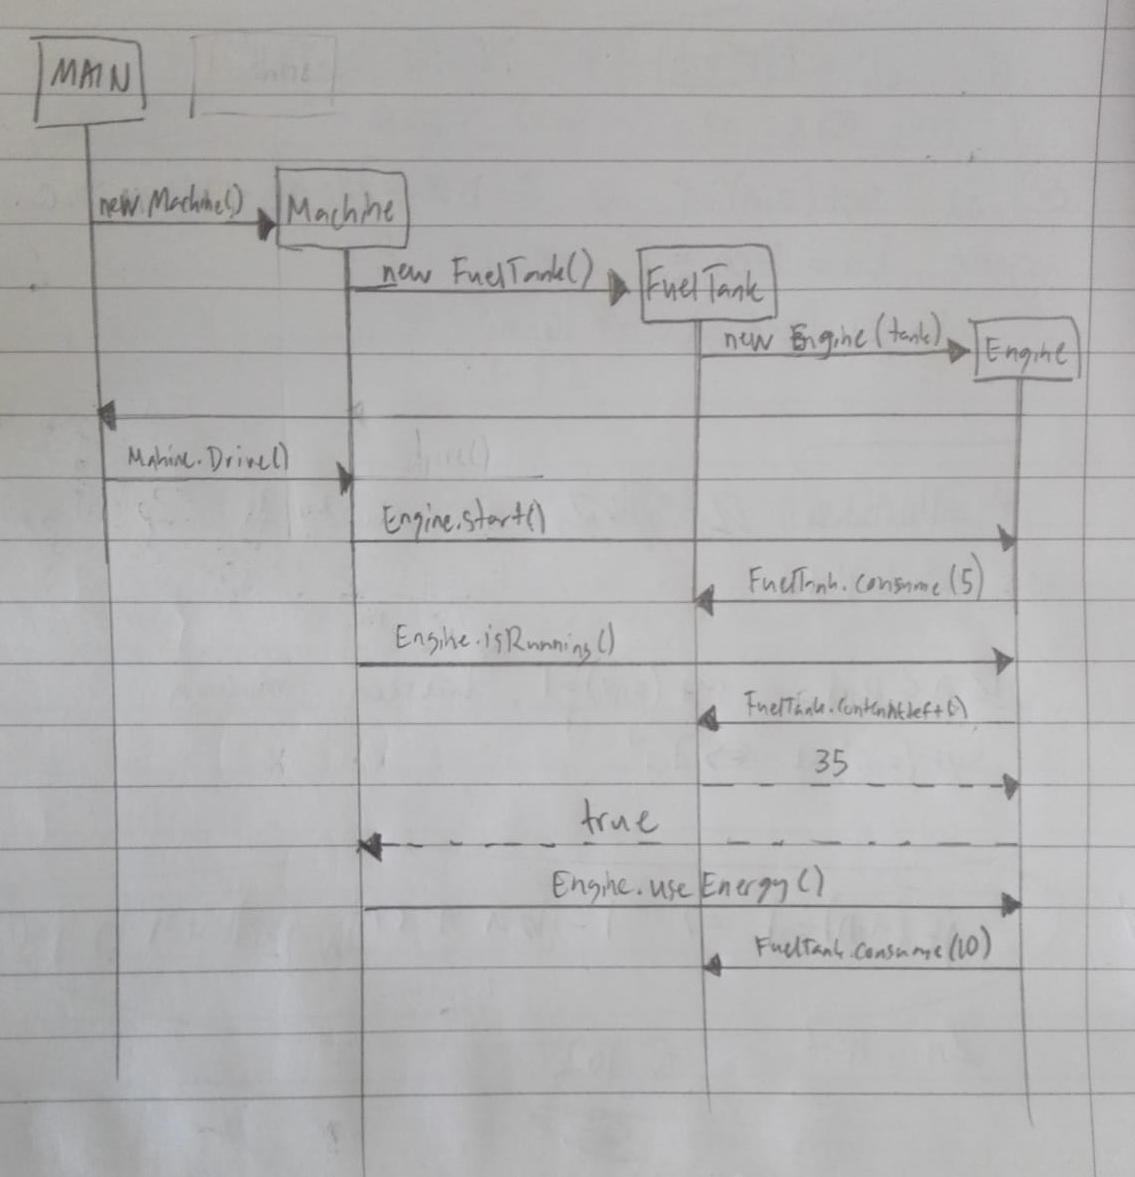 MAIN
new Machine()
Machine
new FuelTank()
FuelTank
new Engine(tank)
Engine
Mahine.Drive()
Engine.start()
FuelTank.consume(5)
Engine.isRunning()
35
true
Engine.useEnergy()
FuelTank.consume(10)